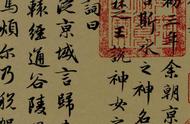 初三年余朝京
斯水之神名
王說神女之
詞曰
京域言歸
轅經通谷陵
馬煩爾乃稅駕